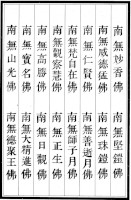 南無妙香佛　南無堅鎧佛
南無威德猛佛　南無珠鎧佛
南無仁賢佛　南無善逝月佛
南無梵自在佛　南無師子月佛
南無觀察慧佛　南無正生佛
南無高勝佛　南無日觀佛
南無寶名佛　南無大精進佛
南無山光佛　南無德聚王佛